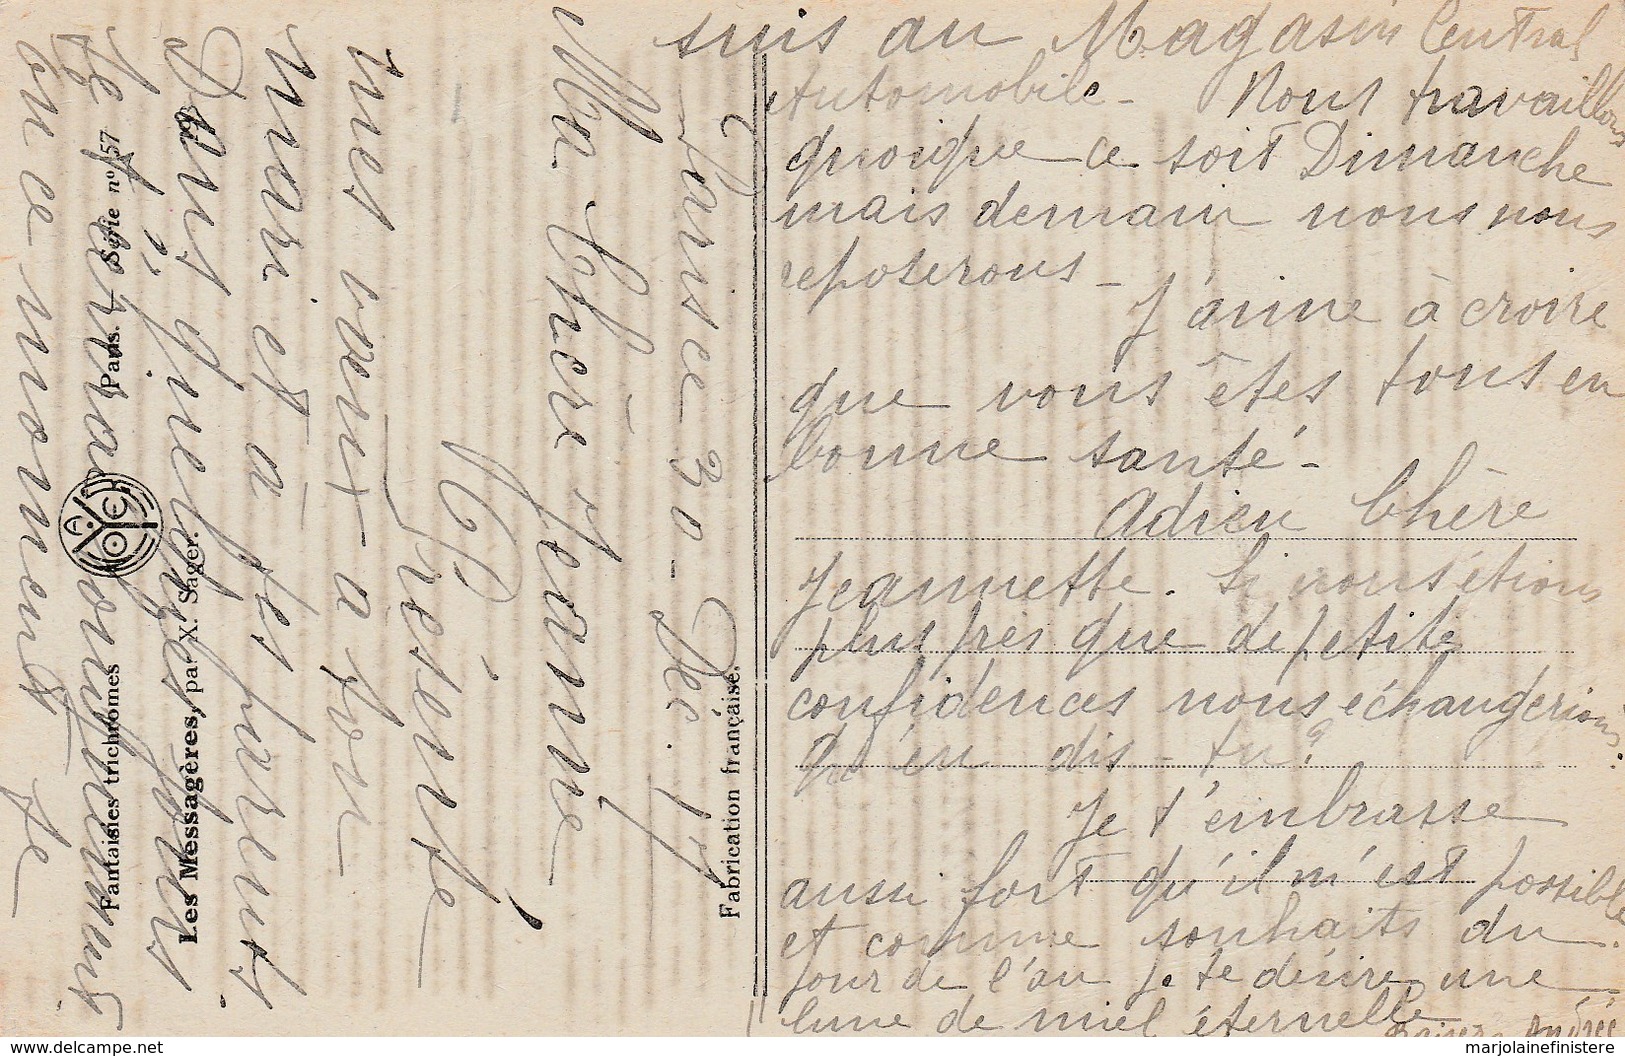 Paris ce 30 - Déc. 17
Ma Chère Jeanne
Présente
mes vœux à ton
mari et à tes parents.
Dans quelques jours
je t'écrirai longuement
en ce moment je
suis au Magasin Central
Automobile - Nous travaillons
quoique ce soit Dimanche
mais demain nous nous
reposerons -
J'aime à croire
que vous êtes tous en
bonne santé -
Adieu Chère
Jeannette. Si nous étions
plus près que de petites
confidences nous échangerions.
Qu'en dis-tu?
Je t'embrasse
aussi fort qu'il m'est possible
et comme souhaits du
jour de l'an je te désire une
lune de miel éternelle
Baisers Andrée
Fabrication française.
Les Messagères, par X. Sager.
Fantaisies trichromes Paris. Série n° 57
marjolainefinistere
www.delcampe.net